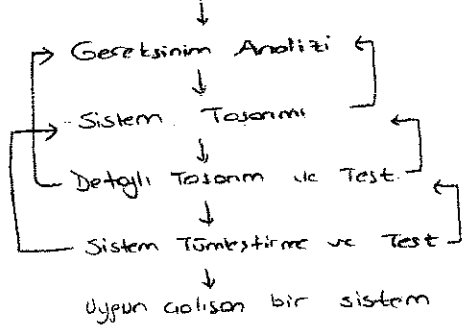 Gereksinim Analizi
Sistem Tasarımı
Detaylı Tasarım ve Test
Sistem Tümleştirme ve Test
Uygun çalışan bir sistem